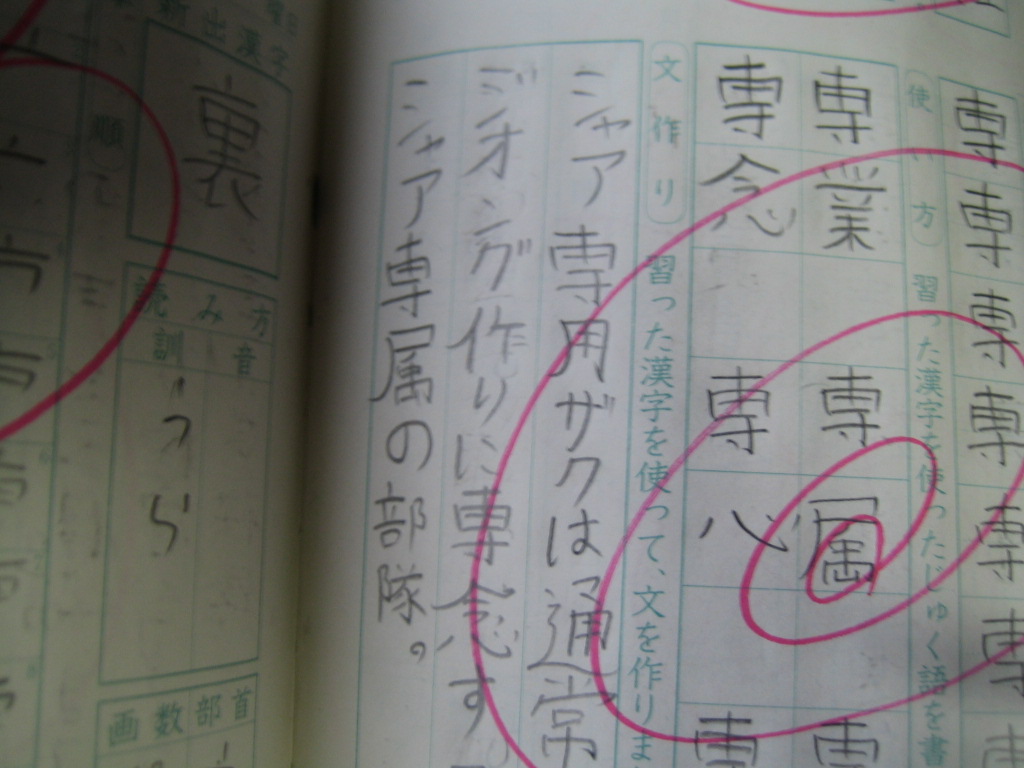 専専専専専専
使い方 習った漢字を使ったじゅく語を書
専業 専属
専念 専心
文作り 習った漢字を使って、文を作りま
シャア専用ザクは通常
ジオング作りに専念す
シャア専属の部隊。
新出漢字
裏
読み方
音
訓
うら
画数
部首
順